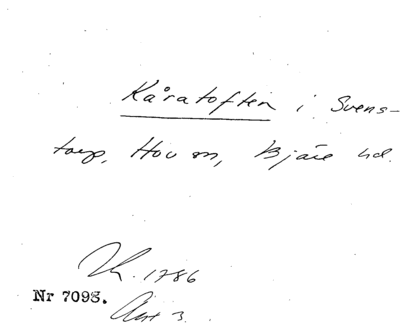 Kåratoften i Svens-
torp, Hov sn, Bjäre hd.
1786
Nr 7098.
Akt 3.